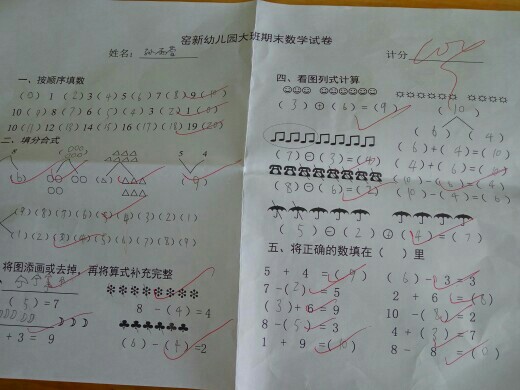 窑新幼儿园大班期末数学试卷
姓名:
计分
一、按顺序填数
(0) 1 (2) 3 (4) 5 (6) 7 (8) 9 (10)
10 (9) 8 (7) 6 (5) 4 (3) 2 (1) (0)
10 (11) 12 (13) 14 (15) 16 (17) 18 (19) (20)
二、填分合式
5 4
(9)
(9) (8) (7) (6) (5) (4) (3) (2) (1)
(1) (2) (3) (4) (5) (6) (7) (8) (9)
将图添画或去掉,再将算式补充完整
(5) = 7
8 - (4) = 4
+ 3 = 9
(6) - (4) = 2
四、看图列式计算
(3) + (6) = (9)
(10)
(6) (4)
(6) + (4) = (10)
(4) + (6) = (10)
(10) - (6) = (4)
(10) - (4) = (6)
(8) - (6) = (2)
(5) - (2) + (4) = (7)
五、将正确的数填在( )里
5 + 4 = (9)
(6) - 3 = 3
7 - (2) = 5
2 + 6 = (8)
(3) + 6 = 9
10 - (8) = 2
8 - (5) = 3
4 + (3) = 7
1 + 9 = (10)
8 - 8 = (0)